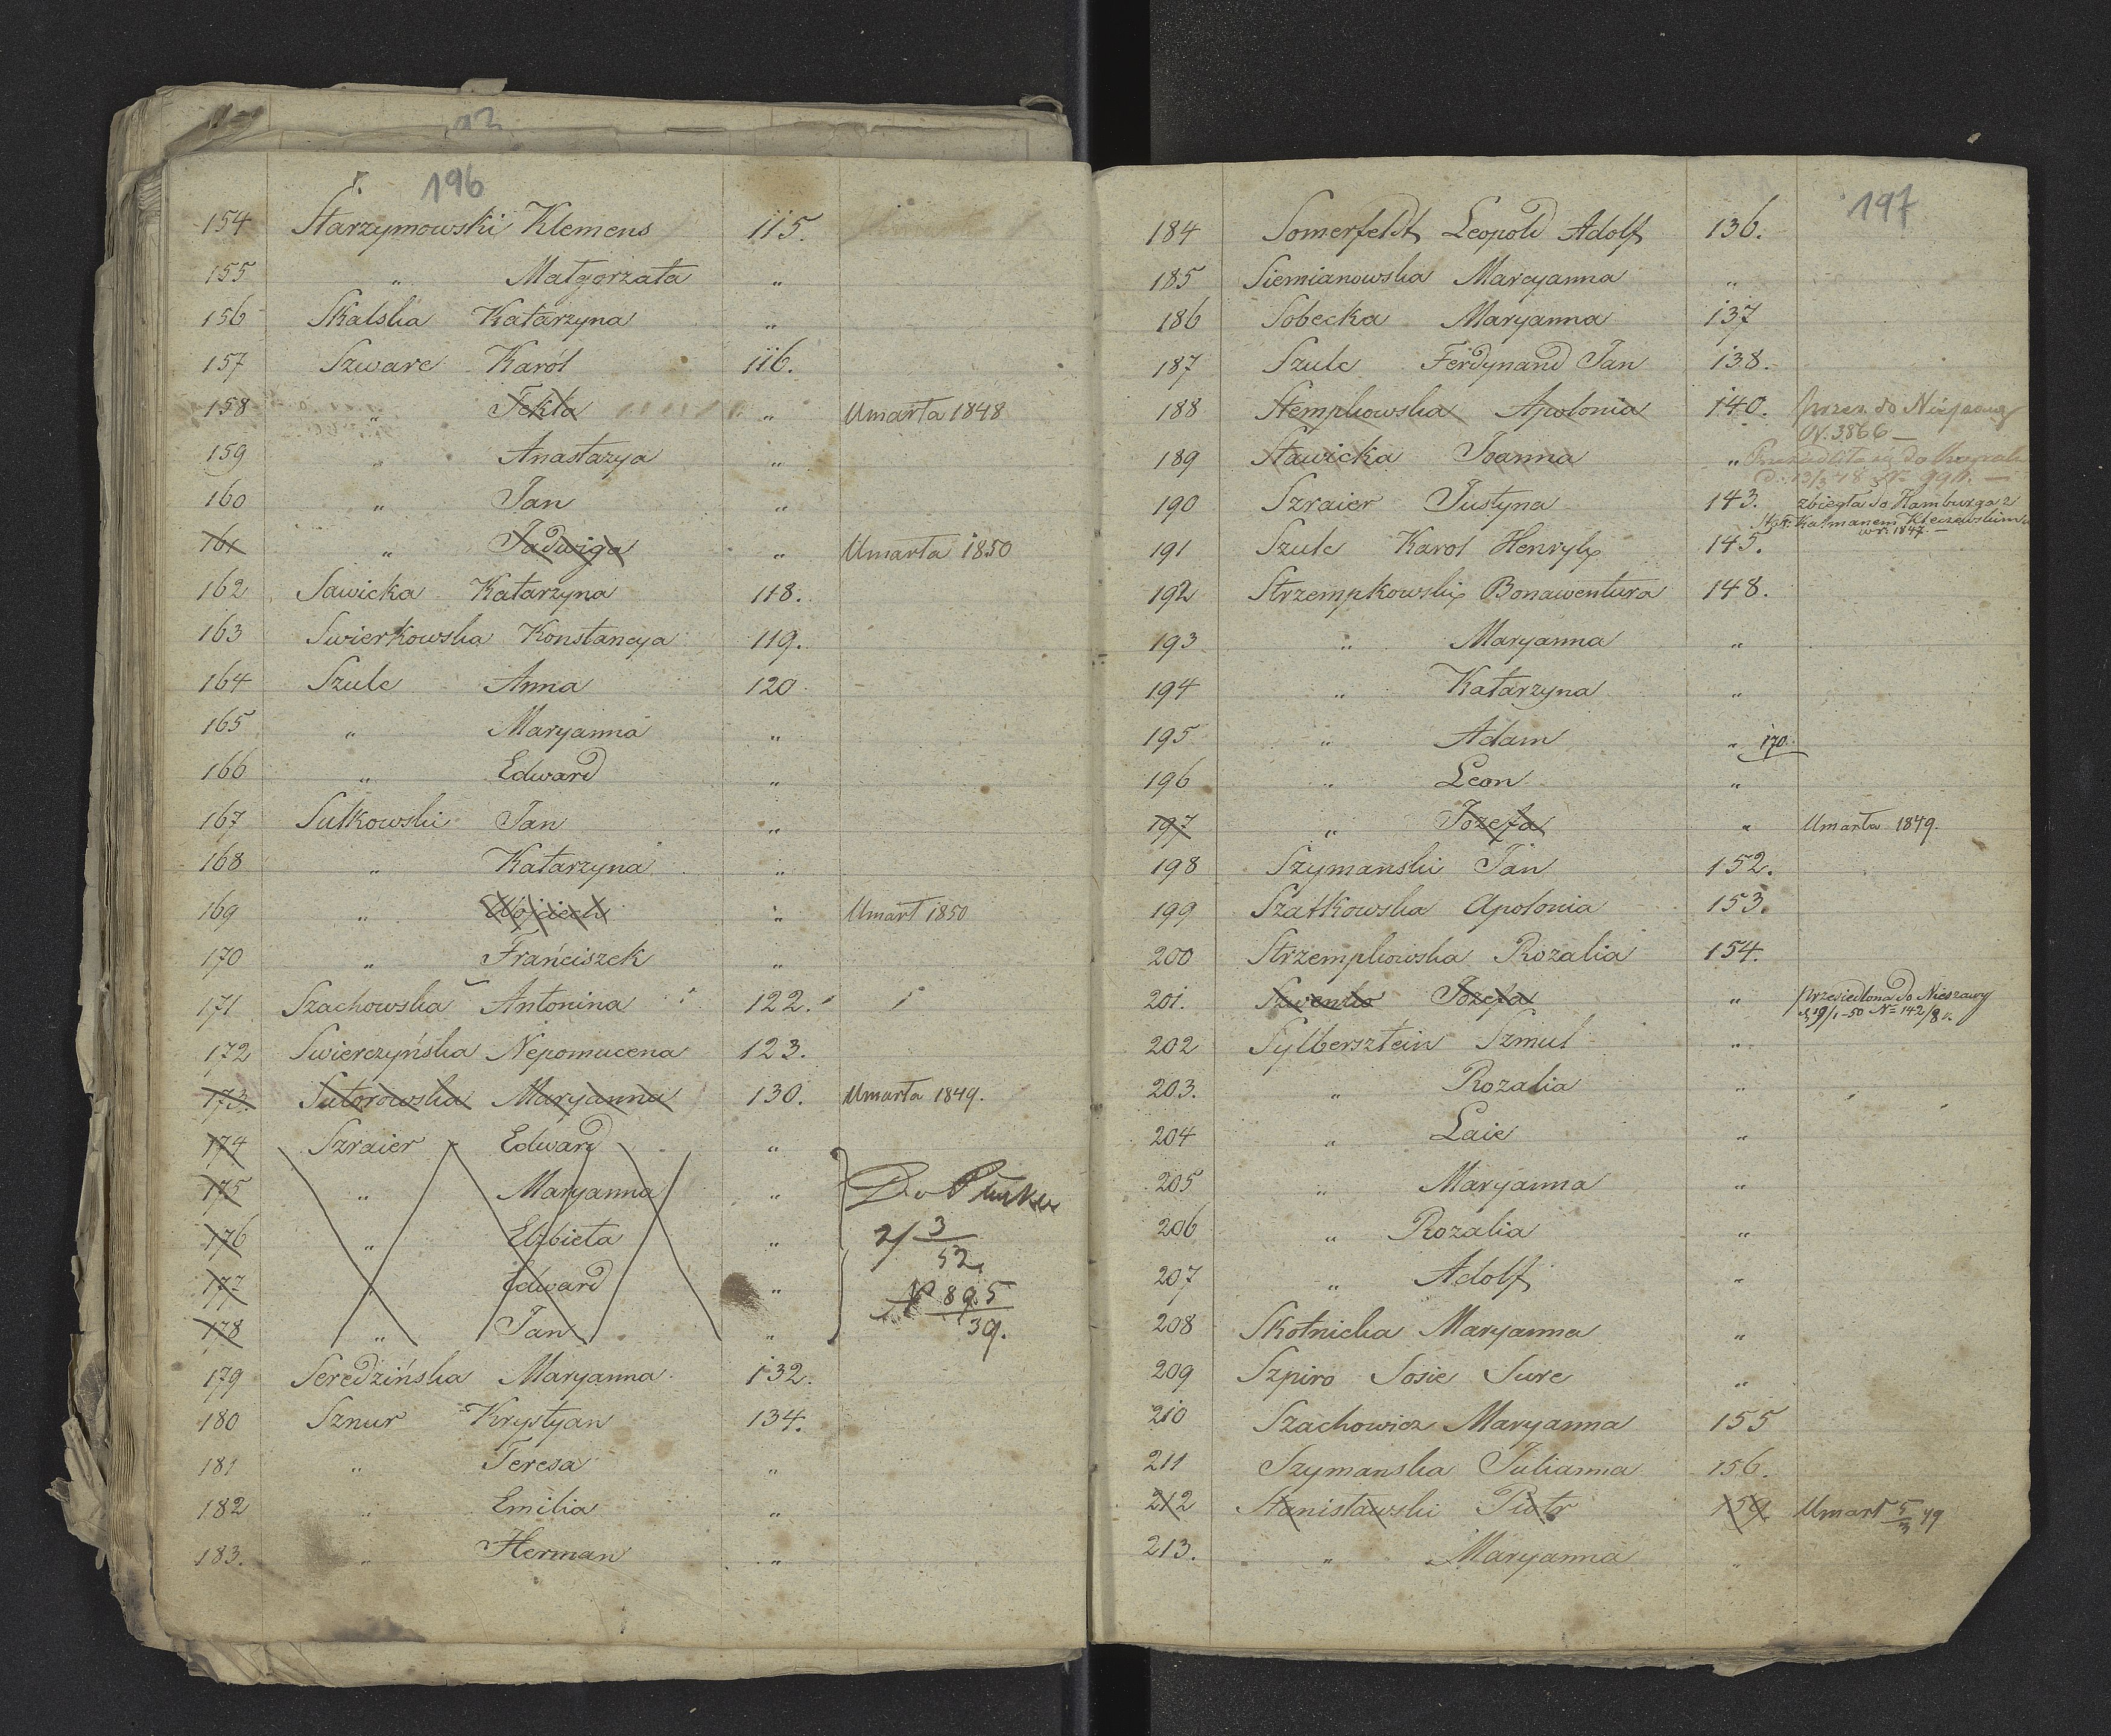 196
154 Starzymowski Klemens 115.
155 " Małgorzata "
156 Skalska Katarzyna "
157 Szwarc Karól 116.
158 " Tekla " Umarła 1848
159 " Anastazya "
160 " Jan "
161 " Jadwiga " Umarła 1850
162 Sawicka Katarzyna 118.
163 Swierkowska Konstancya 119.
164 Szulc Anna 120
165 " Maryanna "
166 " Edward "
167 Sutkowski Jan "
168 " Katarzyna "
169 " Wojciech " Umarł 1850
170 " Franciszek "
171 Szachowska Antonina 122.
172 Swierczyńska Nepomucena 123.
173. Sutorowska Maryanna 130. Umarła 1849.
174 Szraier Edward "
175 " Maryanna " Do
176 " Elzbieta " 2/3 52
177 " Edward " N 895
178 " Jan " 39.
179 Seredzińska Maryanna 132.
180 Sznur Krystyan 134.
181 " Teresa "
182 " Emilia "
183. " Herman "
197
184 Somerfeldt Leopold Adolf 136.
185 Siemianowska Maryanna "
186 Sobecka Maryanna 137
187 Szulc Ferdynand Jan 138.
188 Stempkowska Apolonia 140. przes. do Nieszawy
N. 3866 —
189 Stawicka Joanna "
190 Szraier Justyna 143. zbiegła do Hamburga z
Kalmanem Kleczewskim
w r. 1847. —
191 Szulc Karol Henryk 145.
192 Strzempkowski Bonawentura 148.
193 " Maryanna "
194 " Katarzyna "
195 " Adam " 170.
196 " Leon "
197 " Jozefa " Umarła 1849.
198 Szymanski Jan 152.
199 Szatkowska Apolonia 153.
200 Strzempkowska Rozalia 154.
201. Jozefa " przesiedlona do Nieszawy
d 19/1 - 50 N= 142/8
202 Sylbersztein Szmul "
203. " Rozalia "
204 " Laie "
205 " Maryanna "
206 " Rozalia "
207 " Adolf "
208 Skotnicka Maryanna "
209 Szpiro Sosie Sure "
210 Szachowicz Maryanna 155
211 Szymanska Julianna 156.
212 Stanisławski Piotr 159 Umarł 5/3 49
213. " Maryanna "